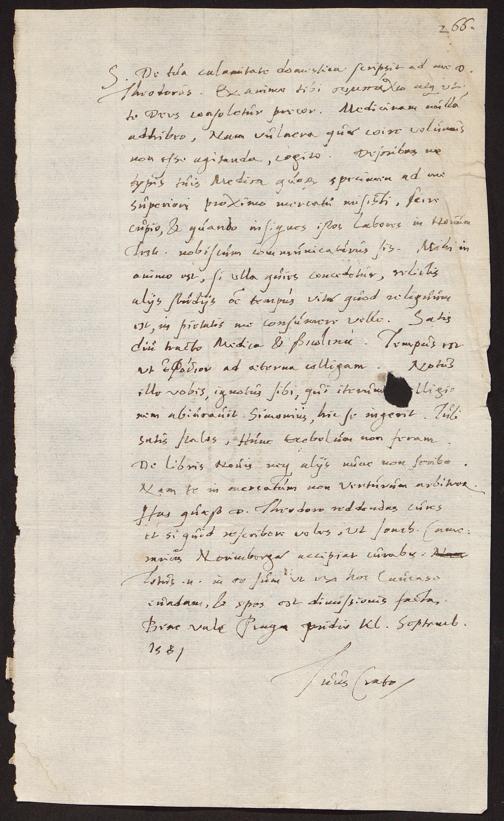 266.
S. De tua calamitate domestica scripsit ad me D.
Theodorus. Ex animo tibi συμπάσχω utj
te Deus consoletur precor. Medicinam nullam
adhibeo, Nam vulnera quae coire volumus
non esse agitanda, cogito. De
typis tuis Medica quorum specimen ad me
superiori proximo mercatu misisti, scire
cupio, & quando insignes istos labores in
nobiscum communicaturus sis. Mihi in
animo est, si ulla quies concedetur, relictis
alijs studijs hoc tempus vitae quod reliquum
est, in pietatis me consumere velle. Satis
diu tracto Medica & . Tempus est
ut ἐφόδιον ad aeterna colligam. Notus
ille vobis, ignotus sibi, qui iterum lligio
nem abiuravit. Simonius, hic se ingerit.
satis . Hunc non feram.
De libris Novis neq alijs nunc non scribo.
Nam te in mercatum non venturum arbitror.
Has quaeso D. Theodoro reddendas cures
et si quid rescribere voles, ut Joach. Came:
rarius Norimbergae accipiat curabis.
Totus .n. in eo sum ut ex hoc Caucaso
evadam, & spes est dimissionis facta.
Bene vale Praga pridie Kl. Septemb.
1581
Tuus Crato